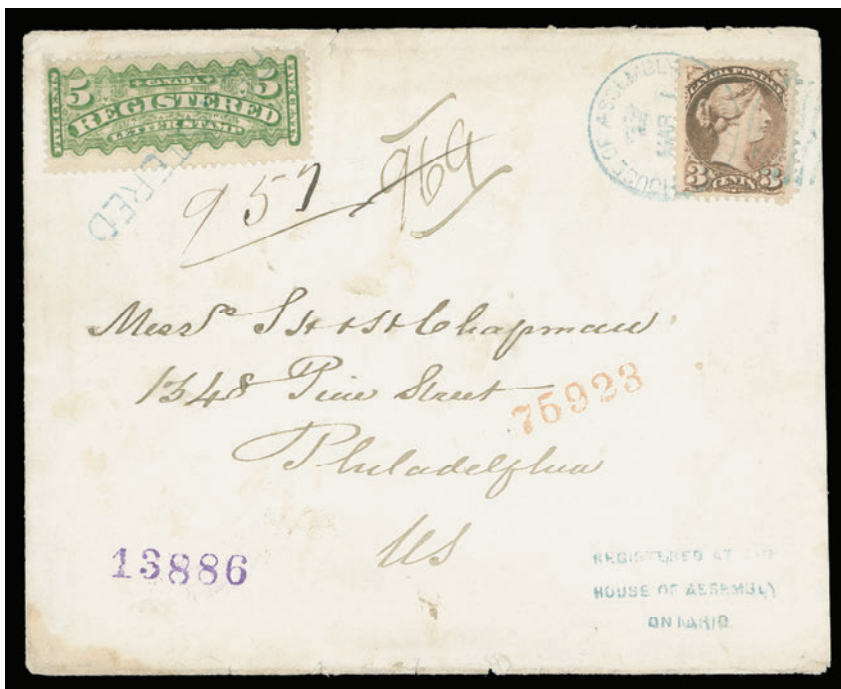 CANADA
5 REGISTERED 5
LETTER STAMP
FIVE CENTS
REGISTERED
HOUSE OF ASSEMBLY
MAR 1
CANADA POSTAGE
3 CENTS 3
957 969
Messrs S H & H Chapman
1348 Pine Street
75923
Philadelphia
US
13886
REGISTERED AT THE
HOUSE OF ASSEMBLY
ONTARIO